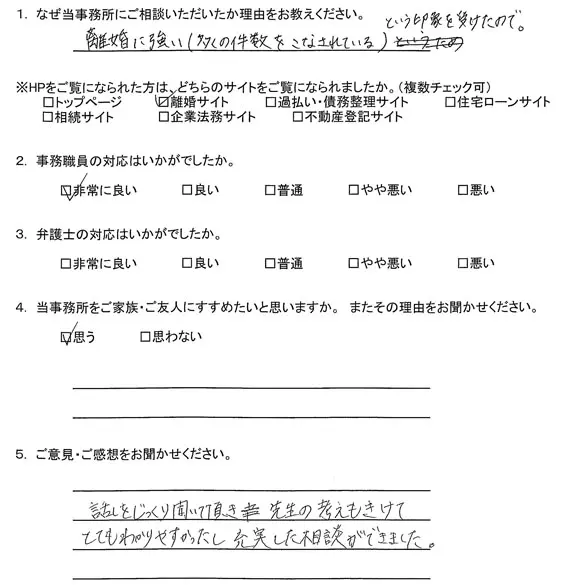 1. なぜ当事務所にご相談いただいたか理由をお教えください。
という印象を受けたので。
離婚に強い(多くの件数をこなされている)
※HPをご覧になられた方は、どちらのサイトをご覧になられましたか。(複数チェック可)
□トップページ ☑離婚サイト □過払い・債務整理サイト □住宅ローンサイト
□相続サイト □企業法務サイト □不動産登記サイト
2. 事務職員の対応はいかがでしたか。
☑非常に良い □良い □普通 □やや悪い □悪い
3. 弁護士の対応はいかがでしたか。
□非常に良い □良い □普通 □やや悪い □悪い
4. 当事務所をご家族・ご友人にすすめたいと思いますか。 またその理由をお聞かせください。
☑思う □思わない
5. ご意見・ご感想をお聞かせください。
話しをじっくり聞いて頂き 先生の考えもきけて
とてもわかりやすかったし 充実した相談ができました。